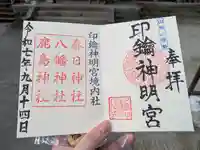 奉拝
印鑰神明宮
印鑰神明宮境内社
春日神社
八幡神社
鹿島神社
令和七年九月十四日